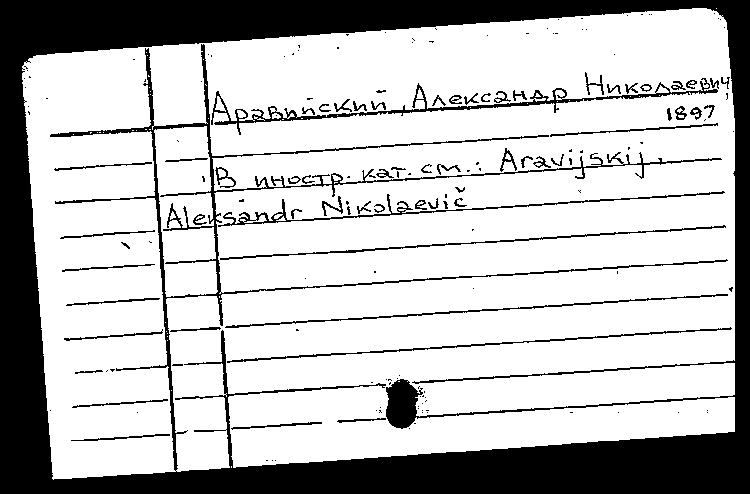 Аравийский, Александр Николаевич,
1897
В иностр. кат. см.: Aravijskij,
Aleksandr Nikolaevič